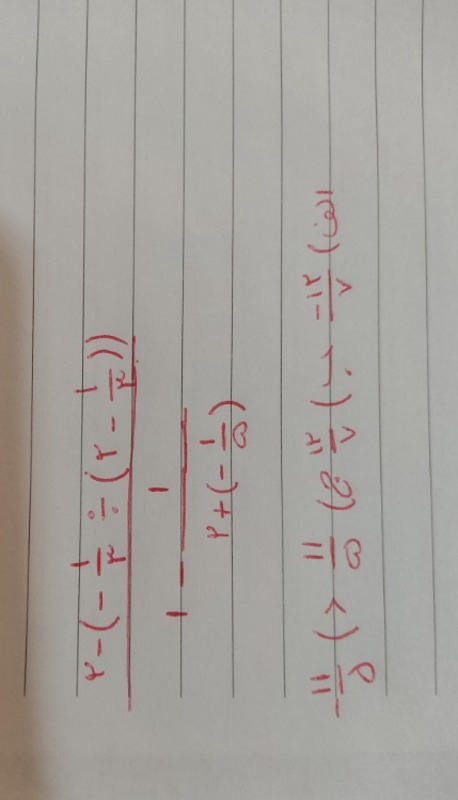 ۲-(-۱/۳ ÷ (۲ - ۱/۳))
۱ - ۱/(۲+(-۱/۵))
الف) -۱۲/۷ ب) ۱۲/۷ ج) ۱۱/۵ د) ۱۱/۹